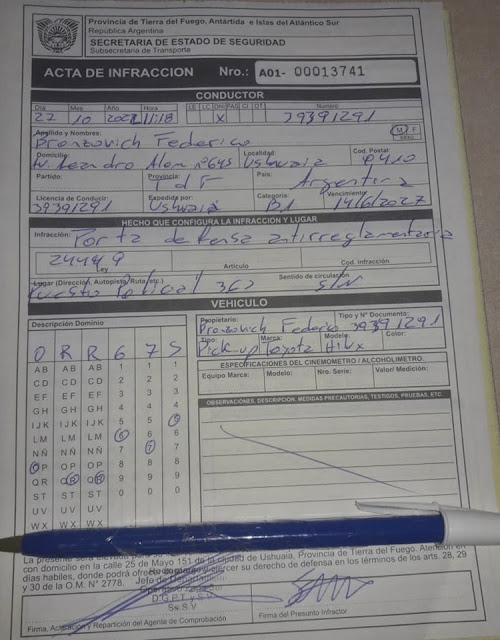 Provincia de Tierra del Fuego, Antártida e Islas del Atlántico Sur
República Argentina
SECRETARIA DE ESTADO DE SEGURIDAD
Subsecretaria de Transporte
ACTA DE INFRACCION Nro.: A01- 00013741
CONDUCTOR
Día Mes Año Hora LE LC DNI PAS CI OT Número
27 10 2022 11:18 X 39391291
Apellido y Nombres: M F
Bronzovich Federico
Domicilio: Localidad: Cod. Postal:
Alem nº 645 Ushuaia 9410
Partido: Provincia: País:
TdF Argentina
Licencia de Conducir: Expedida por: Categoría: Vencimiento:
39391291 Ushuaia B1 14/6/2027
HECHO QUE CONFIGURA LA INFRACCION Y LUGAR
Infracción: Porta defensa antirreglamentaria
24449
Ley Artículo Cod. infracción
Lugar (Dirección, Autopista, Ruta, etc.) Sentido de circulación
Puesto Policial S/N
VEHICULO
Descripción Dominio
O R R 6 7 5
AB AB AB 1 1 1
CD CD CD 2 2 2
EF EF EF 3 3 3
GH GH GH 4 4 4
IJK IJK IJK 5 5 5
LM LM LM 6 6 6
NÑ NÑ NÑ 7 7 7
OP OP OP 8 8 8
QR QR QR 9 9 9
ST ST ST 0 0 0
UV UV UV
WX WX WX
Propietario: Tipo y Nº Documento:
Bronzovich Federico 39391291
Tipo: Marca: Modelo: Color:
Pick-up Toyota Hilux
ESPECIFICACIONES DEL CINEMOMETRO / ALCOHOLIMETRO.
Equipo Marca: Modelo: Nro. Serie: Valor/ Medición:
OBSERVACIONES, DESCRIPCION, MEDIDAS PRECAUTORIAS, TESTIGOS, PRUEBAS, ETC.
La presente será elevada para
con domicilio en la calle 25 de Mayo 151 de la ciudad de Ushuaia, Provincia de Tierra del Fuego. Atención en
días habiles, donde podrá ofrecer ejercer su derecho de defensa en los términos de los arts. 28, 29
y 30 de la O.M. N° 2778.
Jefe de
D.G.P.T. y S.V
Ss.S.V
Firma, Aclaración y Repartición del Agente de Comprobación
Firma del Presunto Infractor